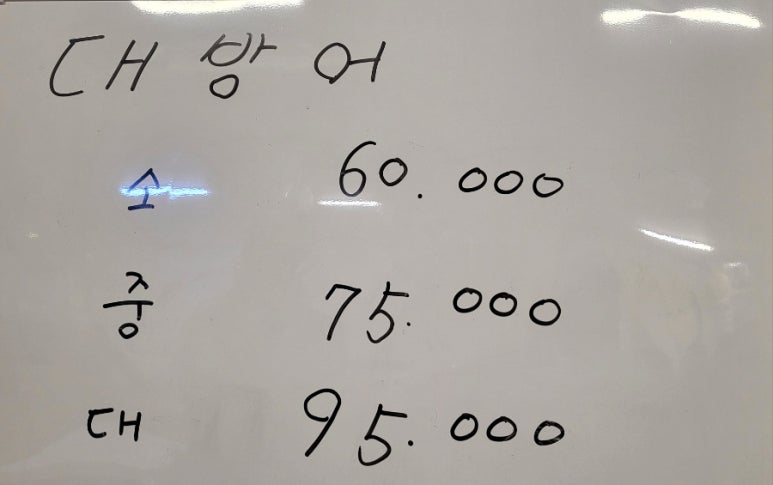 대방어
소 60.000
중 75.000
대 95.000